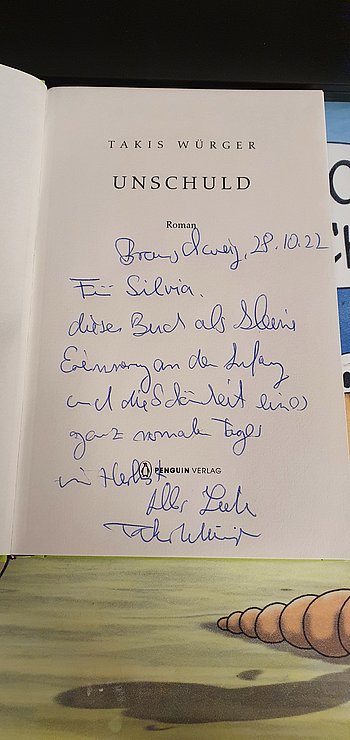 TAKIS WÜRGER
UNSCHULD
Roman
Braunschweig, 28.10.22
Für Silvia,
dieses Buch als kleine
Erinnerung an den Anfang
und die Schönheit eines
ganz normalen Tages
im Herbst
PENGUIN VERLAG
Alles Liebe
Takis Würger